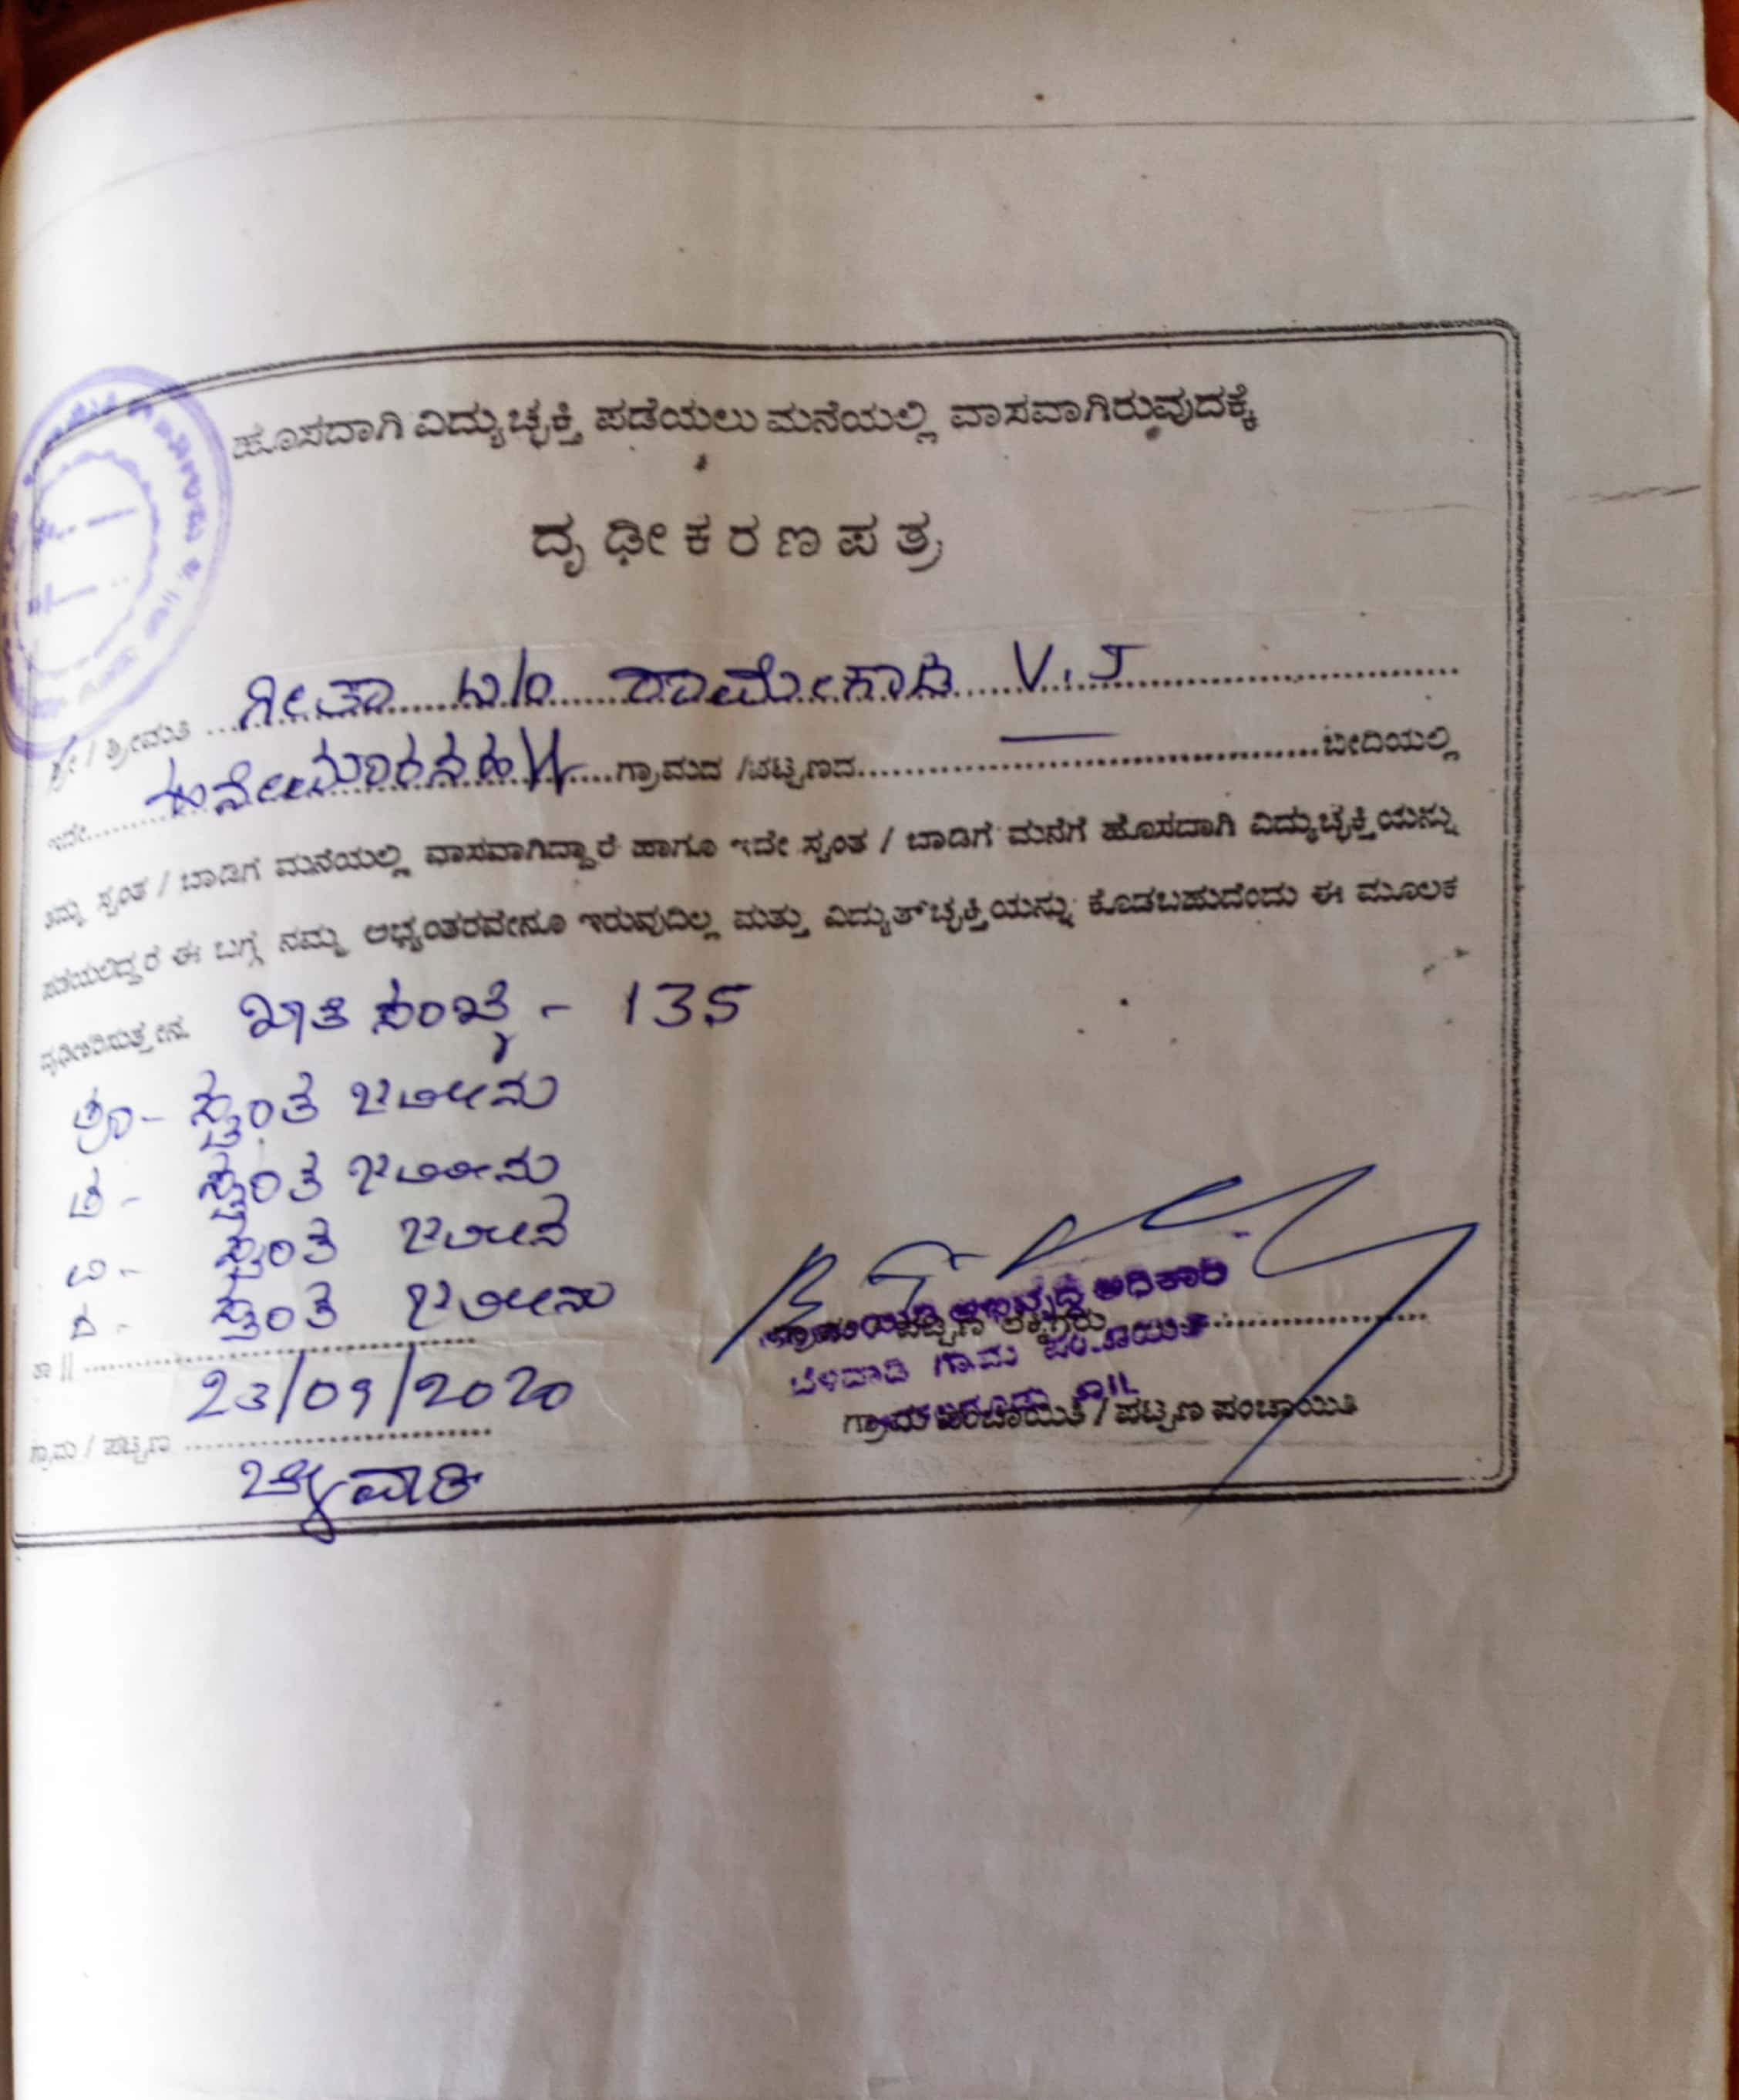 ಹೊಸದಾಗಿ ವಿದ್ಯುಚ್ಛಕ್ತಿ ಪಡೆಯಲು ಮನೆಯಲ್ಲಿ ವಾಸವಾಗಿರುವುದಕ್ಕೆ
ದೃಢೀಕರಣಪತ್ರ
ಶ್ರೀ / ಶ್ರೀಮತಿ ಗೀತಾ V.J
ಇದೇ ಗ್ರಾಮದ / ಪಟ್ಟಣದ — ಬೀದಿಯಲ್ಲಿ
ತಮ್ಮ ಸ್ವಂತ / ಬಾಡಿಗೆ ಮನೆಯಲ್ಲಿ ವಾಸವಾಗಿದ್ದಾರೆ ಹಾಗೂ ಇದೇ ಸ್ವಂತ / ಬಾಡಿಗೆ ಮನೆಗೆ ಹೊಸದಾಗಿ ವಿದ್ಯುಚ್ಛಕ್ತಿಯನ್ನು
ಪಡೆಯಲಿದ್ದರೆ ಈ ಬಗ್ಗೆ ನಮ್ಮ ಅಭ್ಯಂತರವೇನೂ ಇರುವುದಿಲ್ಲ ಮತ್ತು ವಿದ್ಯುತ್‌ಚ್ಛಕ್ತಿಯನ್ನು ಕೊಡಬಹುದೆಂದು ಈ ಮೂಲಕ
ದೃಢೀಕರಿಸುತ್ತೇನೆ. ಖಾತೆ ಸಂಖ್ಯೆ - 135
ಪೂ - ಸ್ವಂತ ಜಮೀನು
ಪ - ಸ್ವಂತ ಜಮೀನು
ಉ - ಸ್ವಂತ ಜಮೀನು
ದ - ಸ್ವಂತ ಜಮೀನು
ಪಂಚಾಯಿತಿ ಅಭಿವೃದ್ಧಿ ಅಧಿಕಾರಿ
ತಾ||
ಬೆಳವಾಡಿ ಗ್ರಾಮ ಪಂಚಾಯಿತಿ
23/09/2020
ಗ್ರಾಮ ಪಂಚಾಯಿತಿ / ಪಟ್ಟಣ ಪಂಚಾಯಿತಿ
ಗ್ರಾಮ / ಪಟ್ಟಣ
ಬೆಳವಾಡಿ